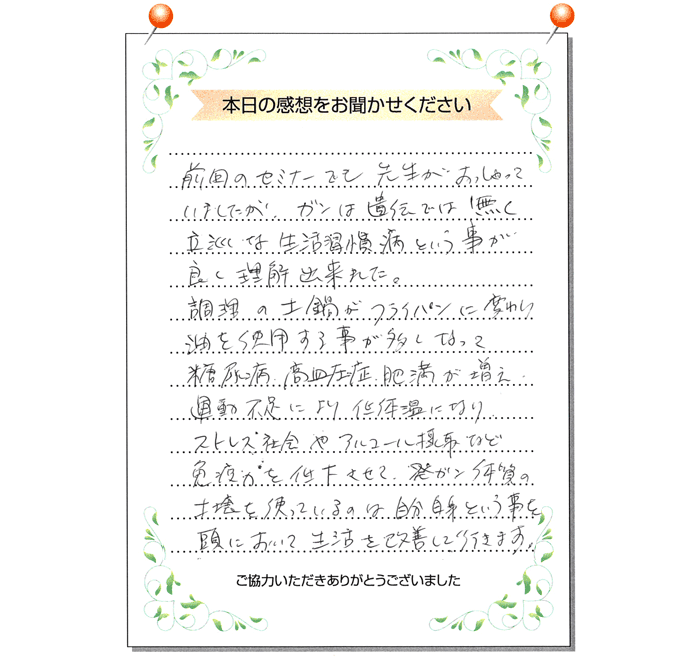 本日の感想をお聞かせください
前回のセミナーでも 先生が おっしゃって
いましたが、ガンは 遺伝では 無く
立派な 生活習慣病という事が
良く理解出来ました。
調理の土鍋がフライパンに変わり
油を使用する事が多くなって
糖尿病、高血圧症、肥満が増え、
運動不足により低体温になり
ストレス社会やアルコール摂取など
免疫力を低下させて、発ガン体質の
土壌を使っているのは自分自身という事を
頭において生活を改善して行きます。
ご協力いただきありがとうございました